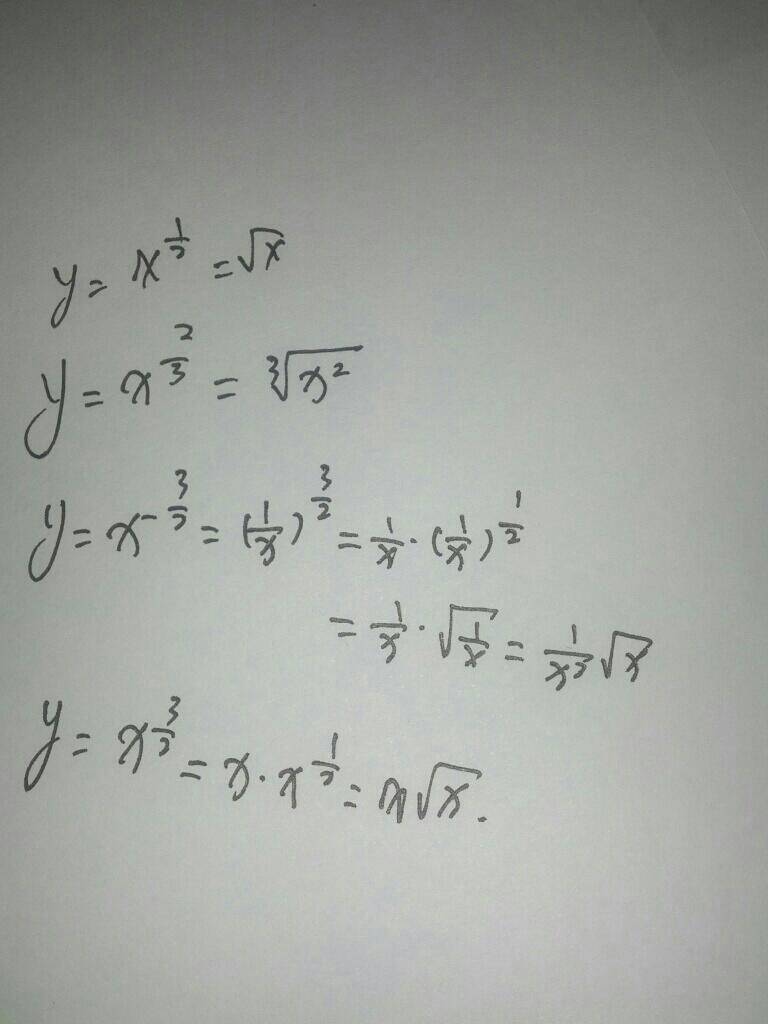 y = x^{\frac{1}{2}} = \sqrt{x}
y = x^{\frac{2}{3}} = \sqrt[3]{x^2}
y = x^{-\frac{3}{2}} = (\frac{1}{x})^{\frac{3}{2}} = \frac{1}{x} \cdot (\frac{1}{x})^{\frac{1}{2}}
= \frac{1}{x} \cdot \sqrt{\frac{1}{x}} = \frac{1}{x^2} \sqrt{x}
y = x^{\frac{3}{2}} = x \cdot x^{\frac{1}{2}} = x\sqrt{x}.